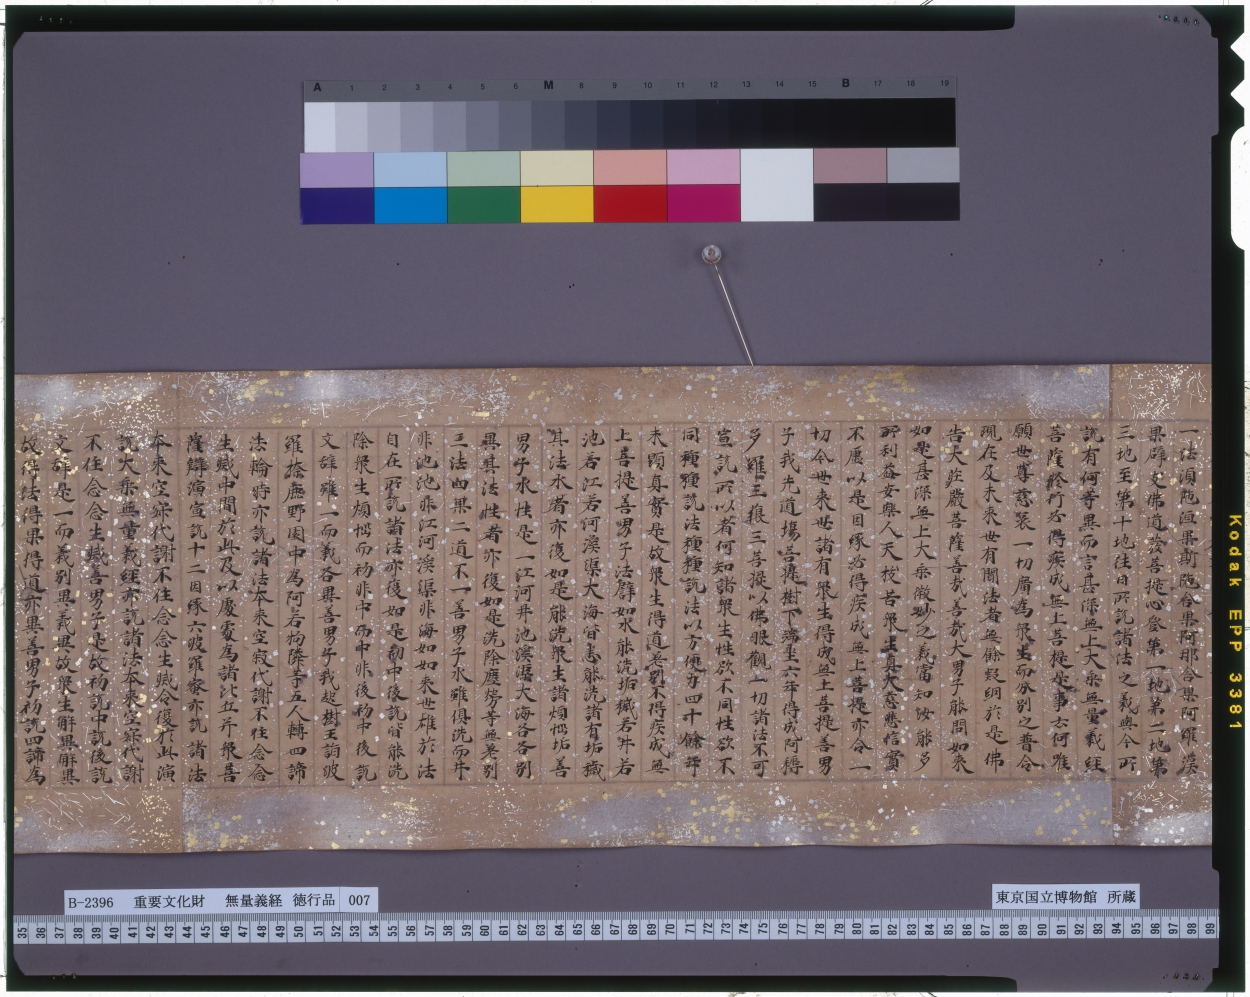 A 1 2 3 4 5 6 M 8 9 10 11 12 13 14 15 B 17 18 19
一法須陁洹果斯陁含果阿那含果阿羅漢
果辟支佛道發菩提心登第一地第二地第
三地至第十地往日所說諸法之義與今所
說有何等異而言甚深無上大乘無量義經
菩薩修行必得疾成無上菩提是事云何唯
願世尊慈哀一切廣為衆生而分別之普令
現在及未來世有聞法者無餘疑網於是佛
告大莊嚴菩薩善哉善哉大男子能問如來
如是甚深無上大乘微妙之義當知汝能多
所利益安樂人天拔苦衆生真大慈悲信實
不虛以是因緣必得疾成無上菩提亦令一
切今世來世諸有衆生得成無上菩提善男
子我先道場菩提樹下端坐六年得成阿耨
多羅三藐三菩提以佛眼觀一切諸法不可
宣說所以者何知諸衆生性欲不同性欲不
同種種說法種種說法以方便力四十餘年
未顯真實是故衆生得道差別不得疾成無
上菩提善男子法譬如水能洗垢穢若井若
池若江若河溪渠大海皆悉能洗諸有垢穢
其法水者亦復如是能洗衆生諸煩惱垢善
男子水性是一江河井池溪渠大海各各別
異其法性者亦復如是洗除塵勞等無差別
三法四果二道不一善男子水雖俱洗而井
非池池非江河溪渠非海如如來世雄於法
自在所說諸法亦復如是初中後說皆能洗
除衆生煩惱而初非中而中非後初中後說
文辭雖一而義各異善男子我起樹王詣波
羅㮈鹿野園中為阿若拘隣等五人轉四諦
法輪時亦說諸法本來空寂代謝不住念念
生滅中間於此及以處處為諸比丘并衆菩
薩辯演宣說十二因緣六波羅蜜亦說諸法
本來空寂代謝不住念念生滅今復於此演
說大乘無量義經亦說諸法本來空寂代謝
不住念念生滅善男子是故初說中說後說
文辭是一而義別異義異故衆生解異解異
故得法得果得道亦異善男子初說四諦為
B-2396 重要文化財 無量義経 徳行品 007
東京国立博物館 所蔵
35 36 37 38 39 40 41 42 43 44 45 46 47 48 49 50 51 52 53 54 55 56 57 58 59 60 61 62 63 64 65 66 67 68 69 70 71 72 73 74 75 76 77 78 79 80 81 82 83 84 85 86 87 88 89 90 91 92 93 94 95 96 97 98 99
Kodak EPP 3381